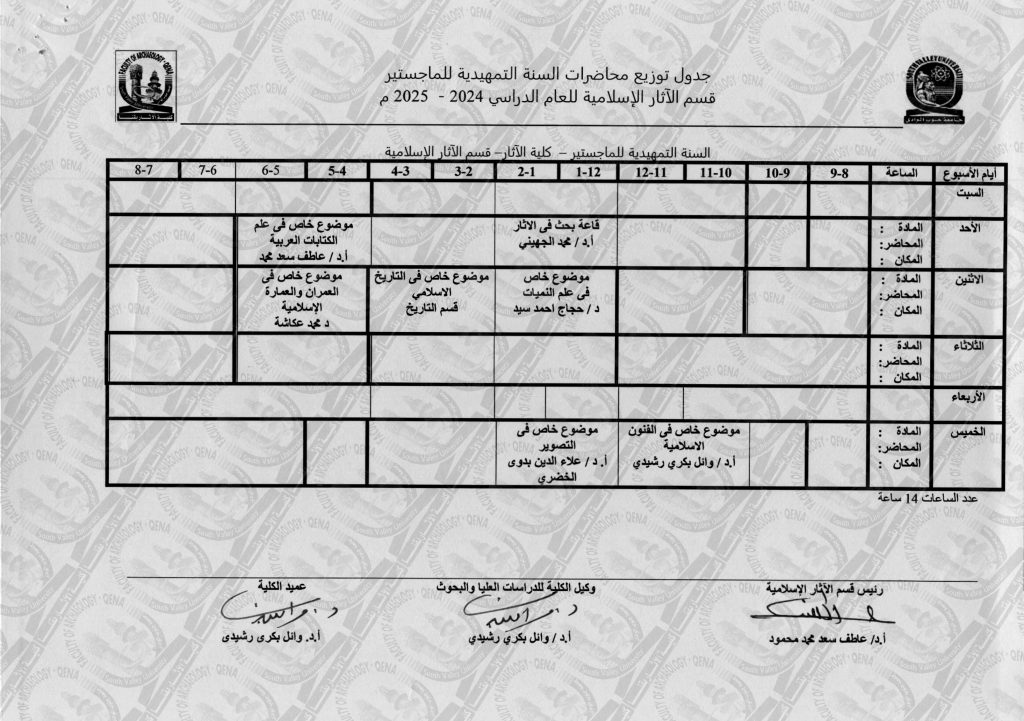 جدول توزيع محاضرات السنة التمهيدية للماجستير
قسم الآثار الإسلامية للعام الدراسي 2024 - 2025 م
السنة التمهيدية للماجستير – كلية الآثار– قسم الآثار الإسلامية
أيام الأسبوع الساعة 9-8 10-9 11-10 12-11 1-12 2-1 3-2 4-3 5-4 6-5 7-6 8-7
السبت
الأحد
المادة :
المحاضر:
المكان :
قاعة بحث فى الاثار
أ.د / محمد الجهيني
موضوع خاص فى علم
الكتابات العربية
أ.د / عاطف سعد محمد
الاثنين
المادة :
المحاضر:
المكان :
موضوع خاص
فى علم النميات
د / حجاج احمد سيد
موضوع خاص فى التاريخ
الاسلامي
قسم التاريخ
موضوع خاص فى
العمران والعمارة
الإسلامية
د محمد عكاشة
الثلاثاء
المادة :
المحاضر:
المكان :
الأربعاء
الخميس
المادة :
المحاضر:
المكان :
موضوع خاص فى الفنون
الاسلامية
أ.د / وائل بكري رشيدي
موضوع خاص فى
التصوير
أ.د / علاء الدين بدوى
الخضري
عدد الساعات 14 ساعة
رئيس قسم الآثار الإسلامية
أ.د/ عاطف سعد محمد محمود
وكيل الكلية للدراسات العليا والبحوث
أ.د / وائل بكري رشيدي
عميد الكلية
أ.د. وائل بكرى رشيدى
FACULTY OF ARCHAEOLOGY - QENA
كلية الآثار بقنا
SOUTH VALLEY UNIVERSITY
جامعة جنوب الوادى